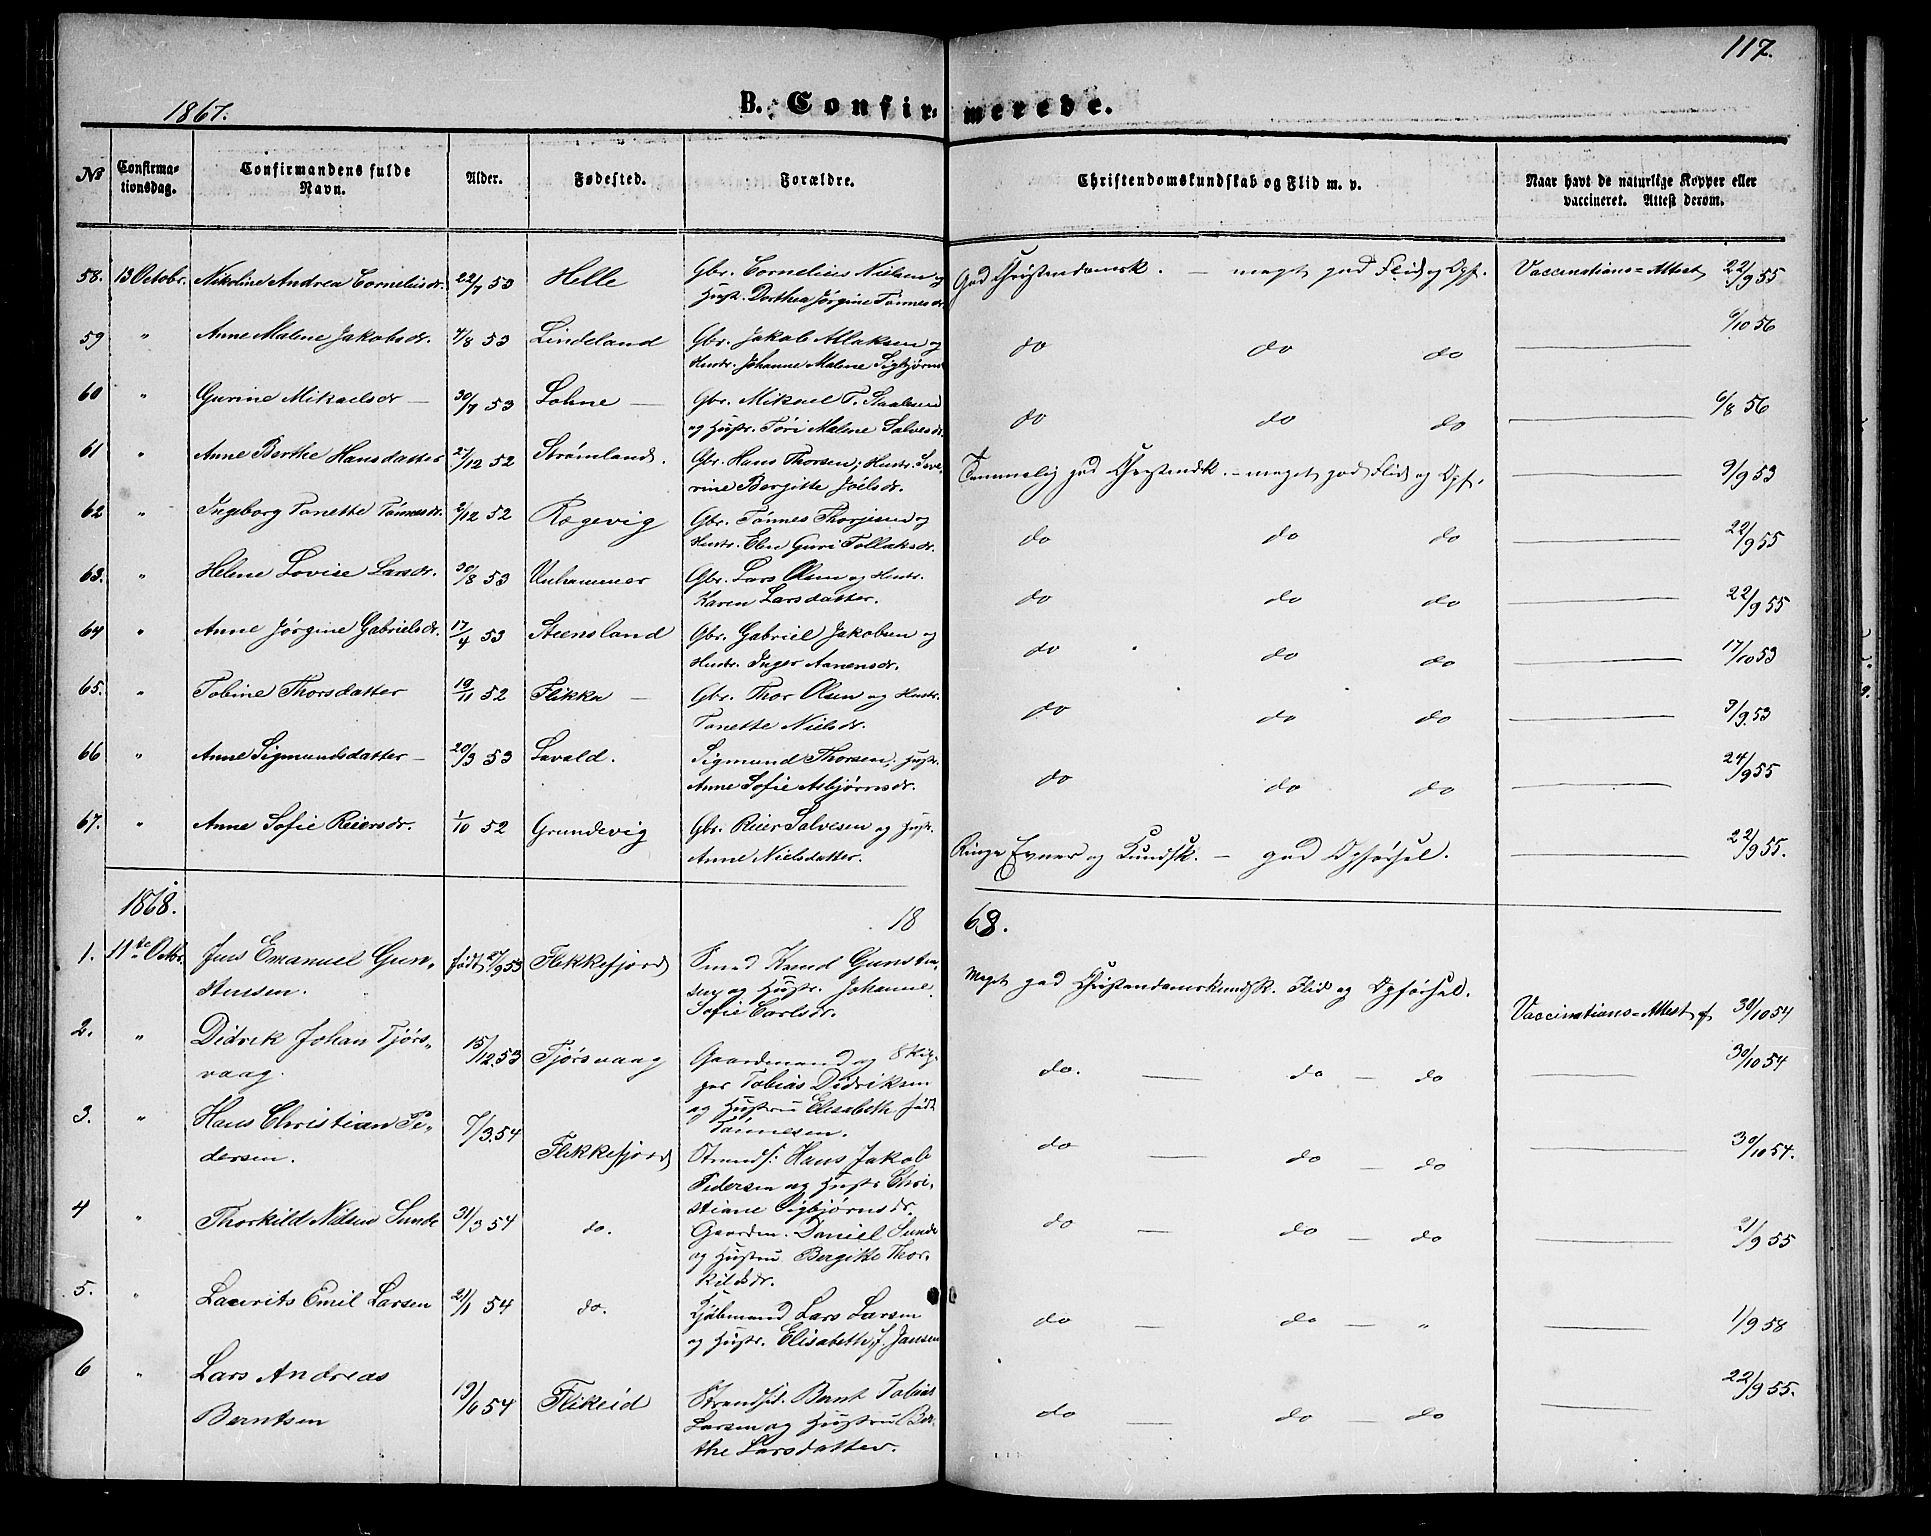 117.
1867.
B. Confirmerede.
No
Confirmationsdag.
Confirmandens fulde Navn.
Alder.
Fødested.
Forældre.
Christendomskundskab og Flid m. v.
Naar havt de naturlige Kopper eller vaccineret. Attest derom.
58. 13 Octobr. Nikoline Andrea Cornelisdr. 22/7 53 Helle Gbr. Cornelius Nielsen og God Christendomsk. — meget god Flid og Opf. Vaccinations=Attest 22/9 55
Hustr. Dorthea Jørgine Tønnesdr.
59 " Anne Malene Jakobsdr. 4/8 53 Lindeland Gbr. Jakob Atlaksen og do do do — 6/10 56
Hustr. Johanne Malene Sigbjørns
60 " Gurine Mikaelsdr — 30/7 53 Lohne — Gbr. Mikael T. Staalesen do do do — 6/8 56
og Hustr. Tøri Malene Salvesdr.
61 " Anne Berthe Hansdatter 27/12 52 Strømland. Gbr. Hans Thorsen, Hustr. Seve- Temmelig god Christendk. — meget god Flid og Opf. — 9/9 53
rine Bergitte Joëlsdr.
62 " Ingeborg Tonette Tønnesdr. 2/12 52 Rægevig Gbr. Tønnes Thorjesen og do do do — 22/9 55
Hustr. Elen Guri Tollaksdr.
63. " Helene Lovise Larsdr. 30/8 53 Unhammer Gbr. Lars Olsen og Hustr. do do do — 22/9 55
Karen Larsdatter.
64 " Anne Jørgine Gabrielsdr. 17/4 53 Steensland Gbr. Gabriel Jakobsen og do " do do — 17/10 53
Hustr. Inger Aanensdr.
65. " Tobine Thorsdatter 19/11 52 Flikka — Gbr. Thor Olsen og Hustr. do do do — 3/9 53
Tonette Nielsdr.
66 " Anne Sigmundsdatter — 20/3 53 Lavold. Sigmund Thorsen, Hustr. do do do — 24/9 55
Anne Sofie Asbjørnsdr.
67. " Anne Sofie Reiersdr. 1/10 52 Grundevig Gbr. Reier Salvesen og Hustr. Ringe Evner og Kundsk. — god Opførsel. — 22/9 55.
Anne Nielsdatter.
1868. 18 68.
1. 11te Octbr. Jens Emanuel Gun- født 27/9 53 Flekkefjord Smed Knud Gunsten- Meget god Christendomskundsk. Flid og Opførsel. Vaccinations=Attest af 30/10 54
stensen. sen og Hustr. Johanne
Sofie Carlsdr.
2. " Didrik Johan Tjørs- 15/12 53 Tjørsvaag Gaardmand og Skip- do. — do — do — 30/10 54
vaag. per Tobias Didriksen
og Hustru Elisabeth født
Tønnesen.
3. " Hans Christian Pe- 7/3 54 Flekkefjord Strands: Hans Jakob do — do — do — 30/10 54.
dersen. Pedersen og Hustr. Chri-
stiane Sigbjørnsdr.
4 " Thorkild Nilsen Sunde 31/3 54 do. Gaardm. Daniel Sunde do — do — do — 21/9 55
og Hustru Bergitte Thor-
kildsdr.
5. " Laurits Emil Larsen 21/1 54 do. Kjøbmand Lars Larsen do — do — " — 1/9 58
og Hustr. Elisabeth f. Jansen
6 " Lars Andreas 19/6 54 Flikeid Strandsid. Bernt Tobias do — do — do — 22/9 55.
Berntsen Larsen og Hustru Ber-
the Larsdatter.